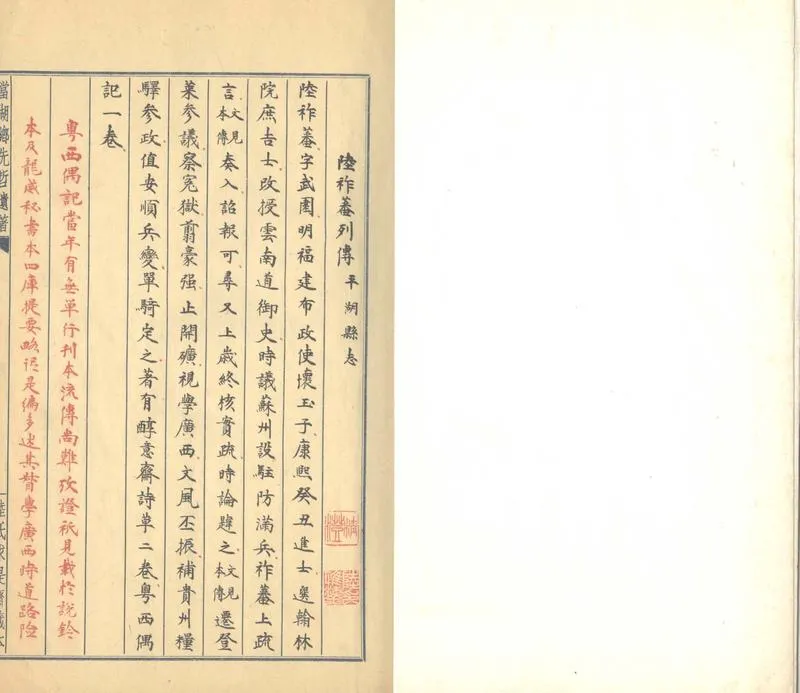 陸祚蕃列傳 平湖縣志
陸祚蕃字武園明福建布政使懷玉子康熙癸丑進士選翰林
院庶吉士改授雲南道御史時議蘇州設駐防滿兵祚蕃上疏
言文見本傳奏入詔報可尋又上歲終核實疏時論韙之文見本傳遷登
萊參議察冤獄翦豪强止開礦視學廣西文風丕振補貴州糧
驛參政值安順兵變單騎定之著有醇意齋詩草二卷粤西偶
記一卷
粤西偶記當年有無單行刊本流傳尚難攷證祇見載於說鈴
本及龍威秘書本四庫提要略謂是編多述其督學廣西時道路險
當湖鄉先哲遺著
陸氏求是齋藏本